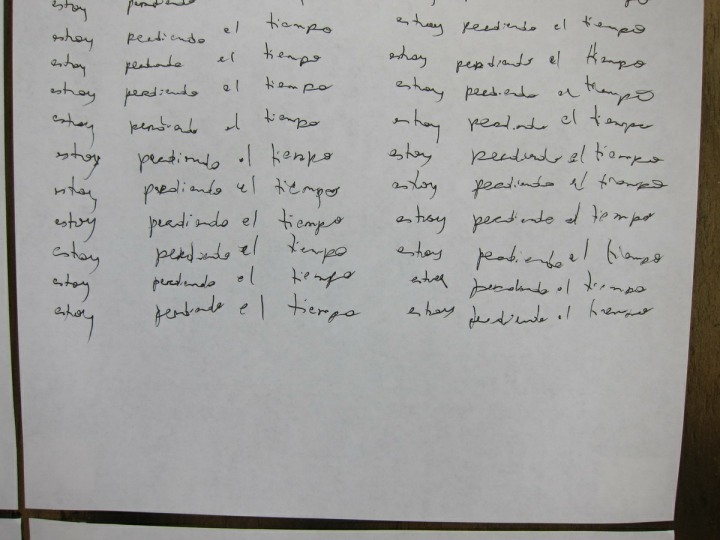 estoy perdiendo
estoy perdiendo el tiempo estoy perdiendo el tiempo
estoy perdiendo el tiempo estoy perdiendo el tiempo
estoy perdiendo el tiempo estoy perdiendo el tiempo
estoy perdiendo el tiempo estoy perdiendo el tiempo
estoy perdiendo el tiempo estoy perdiendo el tiempo
estoy perdiendo el tiempo estoy perdiendo el tiempo
estoy perdiendo el tiempo estoy perdiendo el tiempo
estoy perdiendo el tiempo estoy perdiendo el tiempo
estoy perdiendo el tiempo estoy perdiendo el tiempo
estoy perdiendo el tiempo estoy perdiendo el tiempo